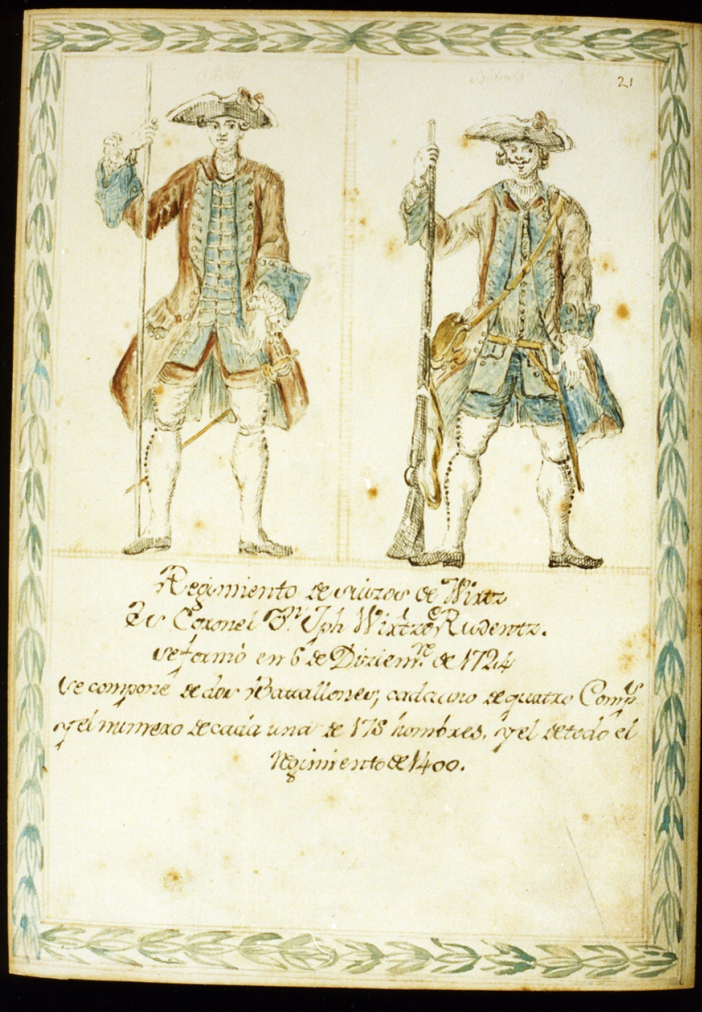 21
Regimiento de suizos de Wirtz
Es Coronel Dn. Jph Wirtz de Rudentz.
se formò en 6 de Diziemre. de 1724
Se compone de dos Batallones, cada uno de quatro Comps.
y el numero de cada una de 175 hombres, y el de todo el
regimiento de 1400.